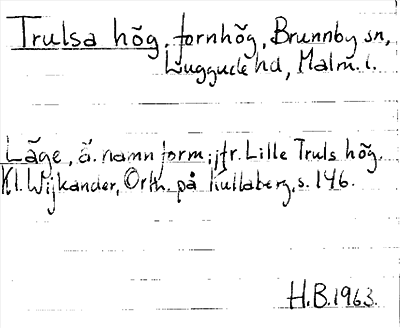 Trulsa hög, fornhög, Brunnby sn,
Luggude hd, Malm. l.
Läge, ä. namnform; jfr. Lille Truls hög.
Kl. Wijkander, Ortn. på Kullaberg, s. 146.
H.B. 1963.